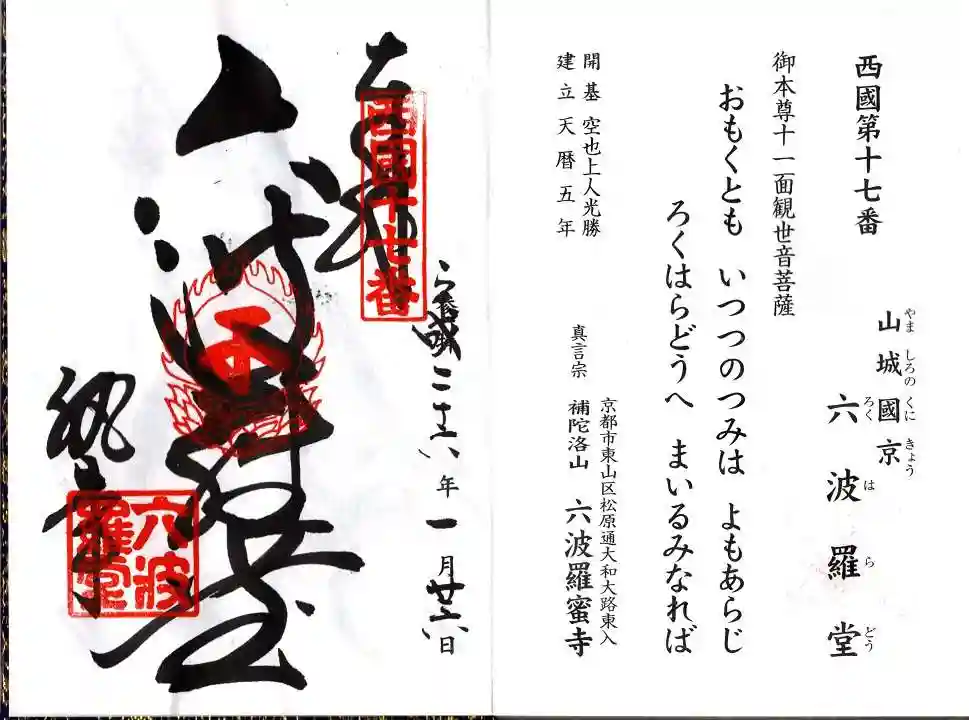 西國第十七番
山城國京
やましろのくにきょう
六波羅堂
ろくはらどう
御本尊十一面観世音菩薩
おもくとも いつつのつみは よもあらじ
ろくはらどうへ まいるみなれば
開基 空也上人光勝
建立天暦五年
京都市東山区松原通大和大路東入
真言宗 補陀洛山 六波羅蜜寺
西國十七番
年一月廿六日
六波羅堂
六波羅堂